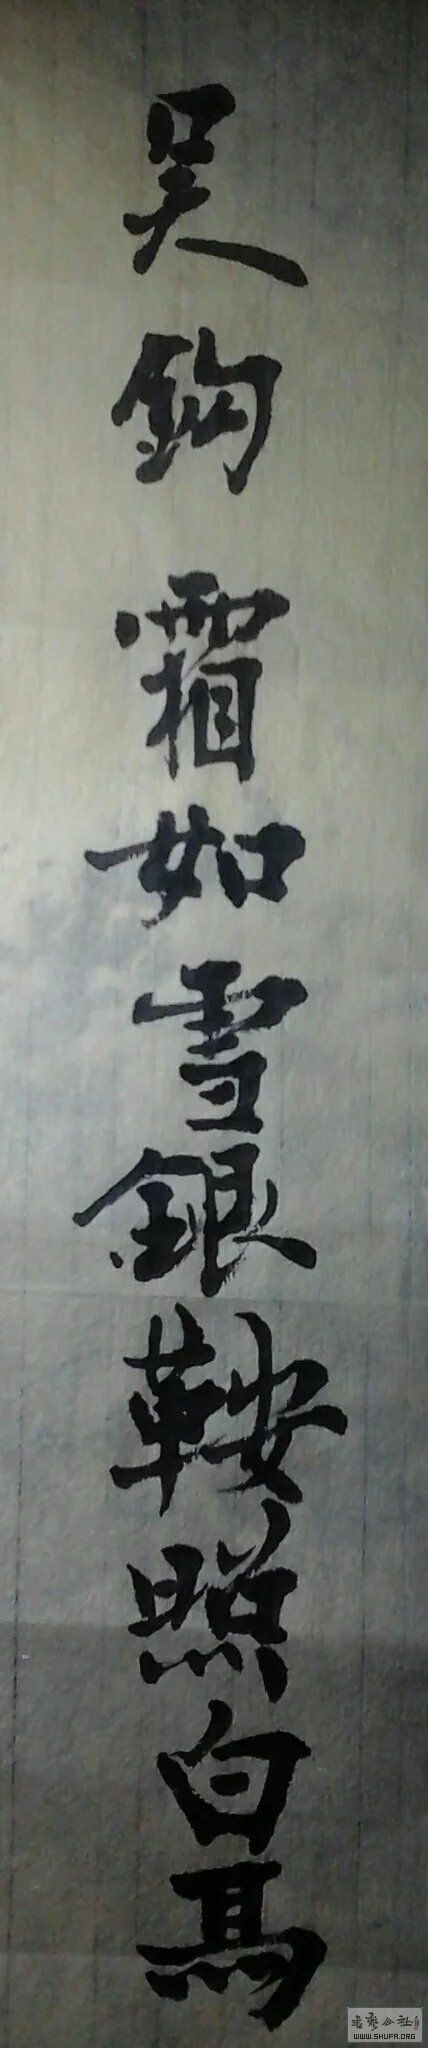 吴鈎霜如雪銀鞍照白馬
WWW.SHUFA.ORG